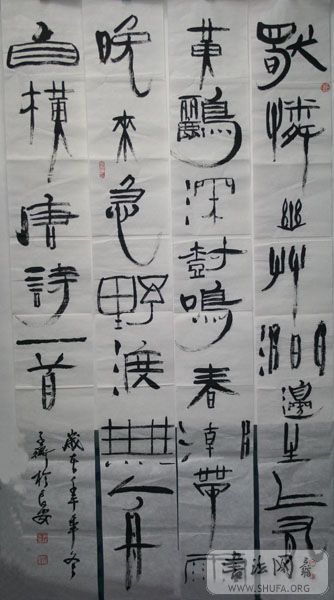 獨憐幽艸澗邊生上有
黃鸝深樹鳴春潮帶雨
晚來急野渡無人舟
自橫唐詩一首
歲在
於長安
書法网
WWW.SHUFA.ORG